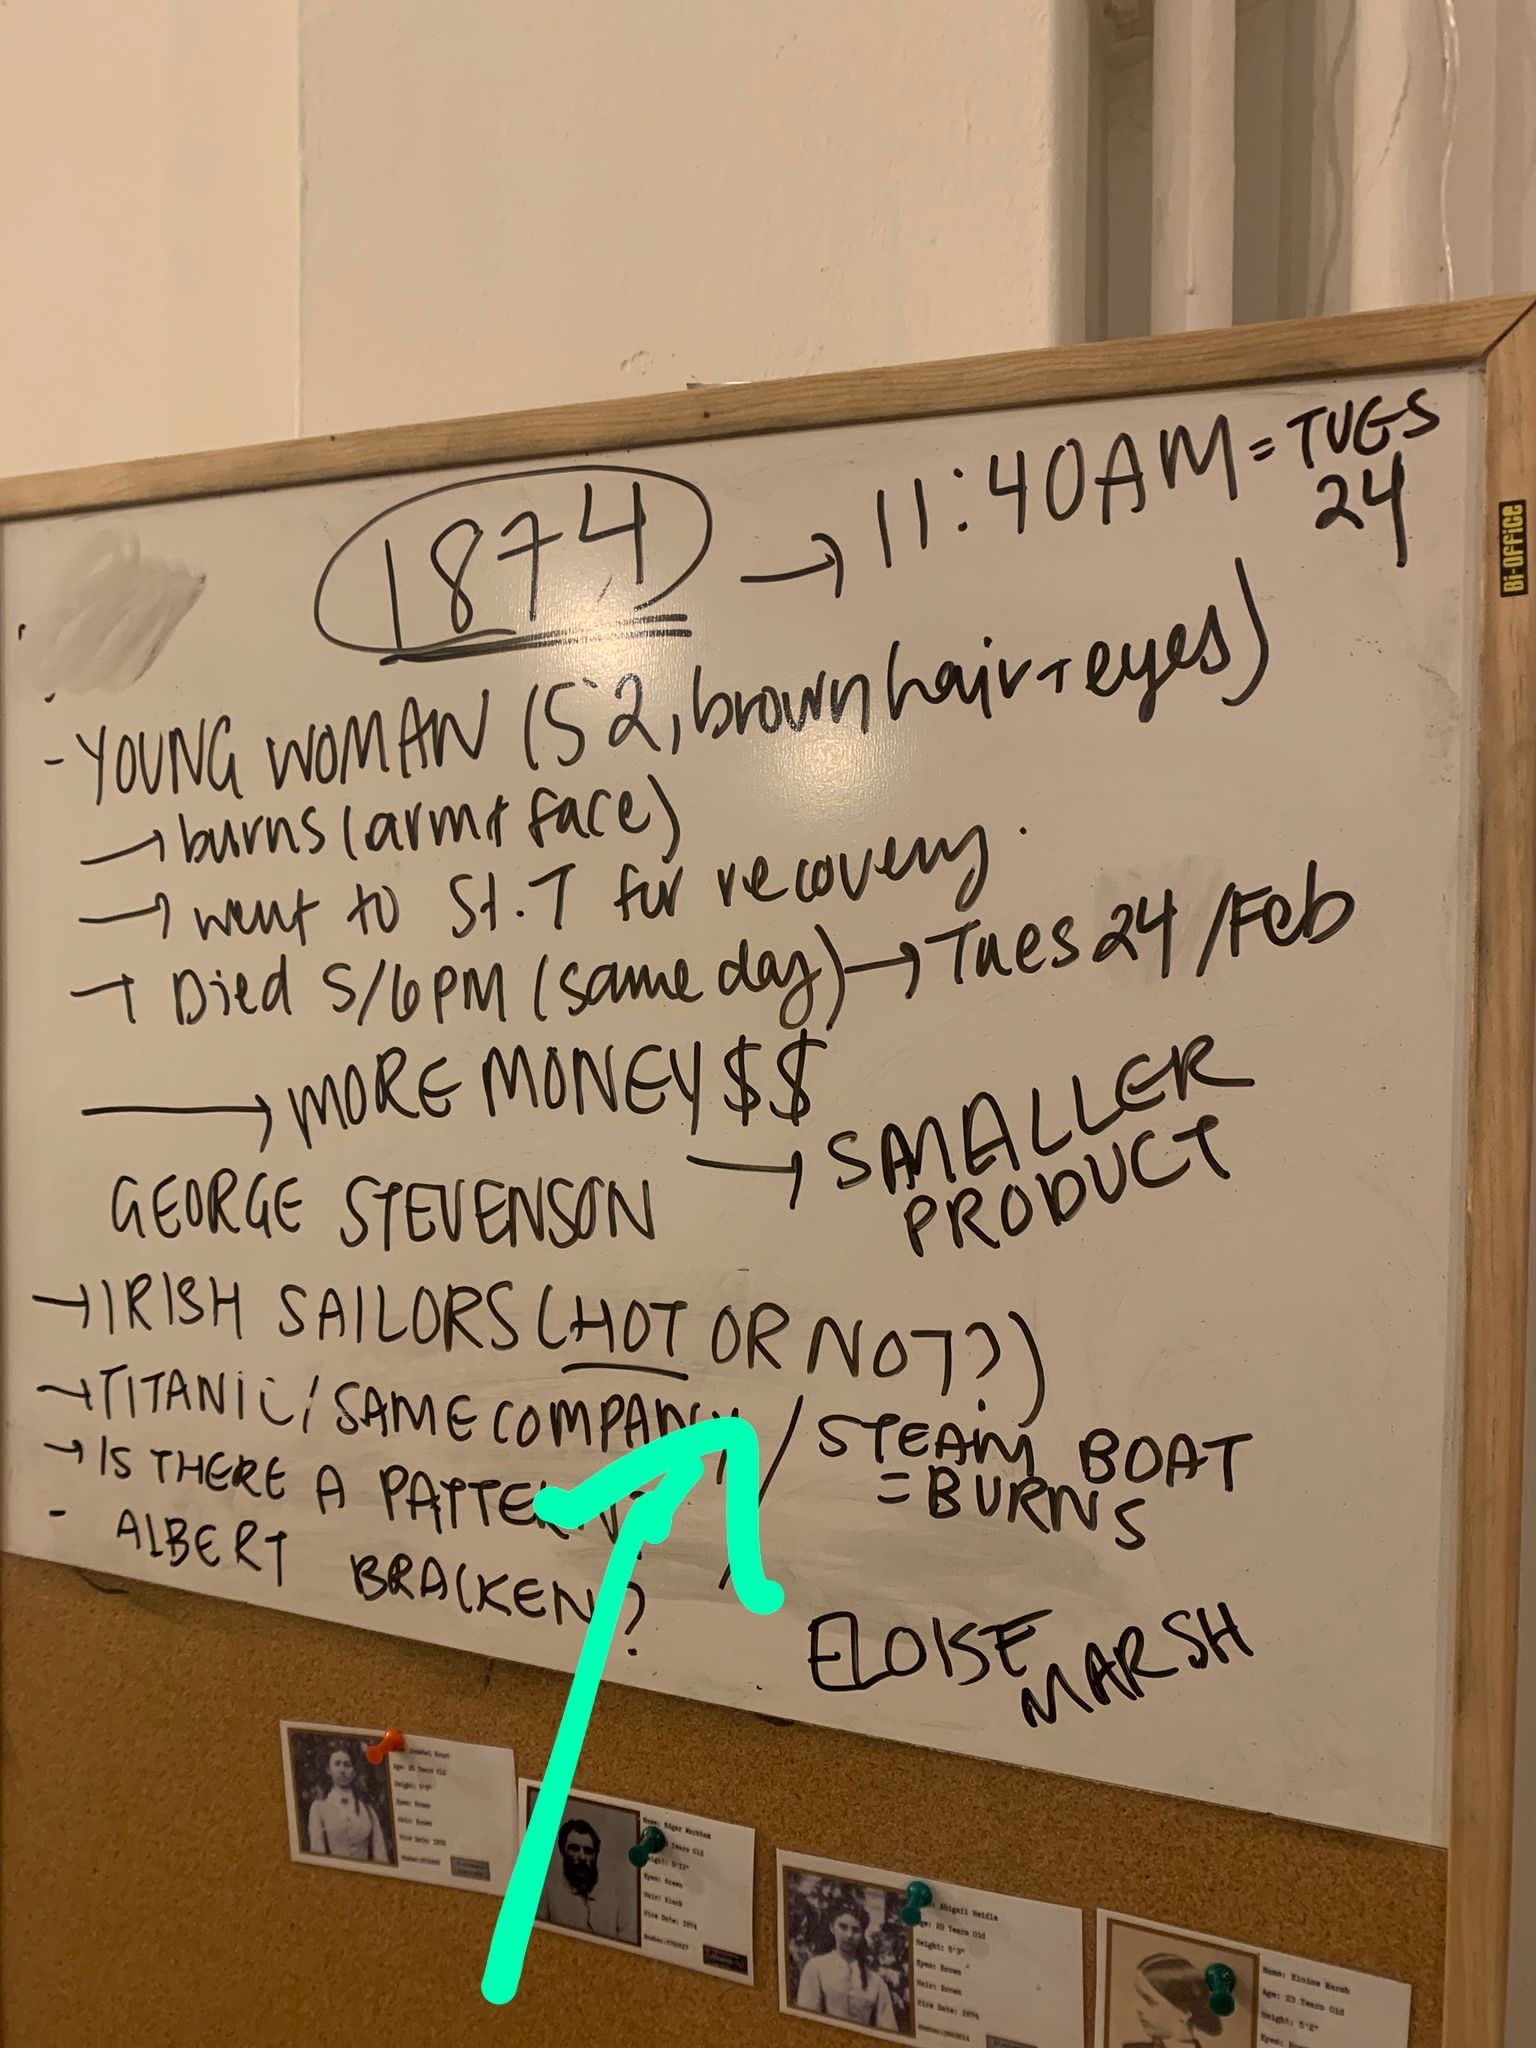 1874 → 11:40AM = TUES 24
Bi-Office
- YOUNG WOMAN (5'2, brown hair + eyes)
→ burns (arm + face)
→ went to St. T for recovery.
→ Died 5/6PM (same day) → Tues 24/Feb
→ MORE MONEY $$
→ SMALLER PRODUCT
GEORGE STEVENSON
→ IRISH SAILORS (HOT OR NOT?)
→ TITANIC / SAME COMPANY / STEAM BOAT = BURNS
→ IS THERE A PATTERN?
- ALBERT BRACKEN?
ELOISE MARSH
Age: 25 Years Old
Height: 5'5"
Hair: Brown
Name: Edgar Markham
Years Old
Height: 5'11"
Eyes: Green
Hair: Black
Hire Date: 1874
Abigail
Age: 23 Years Old
Height: 5'3"
Eyes: Brown
Hair: Brown
Hire Date: 1874
Name: Eloise Marsh
Age: 23 Years Old
Height: 5'2"
Eyes: